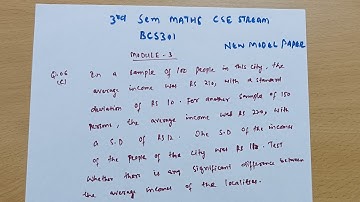 3rd Sem MATHS CSE STREAM
BCS301
NEW MODEL PAPER
MODULE-3
Q.06
(c)
In a sample of 100 people in this city, the
average income was Rs 210, with a standard
deviation of Rs 10. For another sample of 150
persons, the average income was Rs 220, with
a S.D of Rs 12. The S.D of the incomes
of the people of the city was Rs 11. Test
whether there is any significant difference between
the average incomes of the localities.